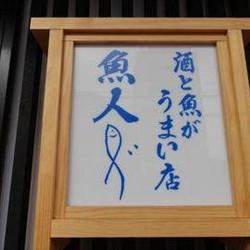 酒と魚が
うまい店
魚人